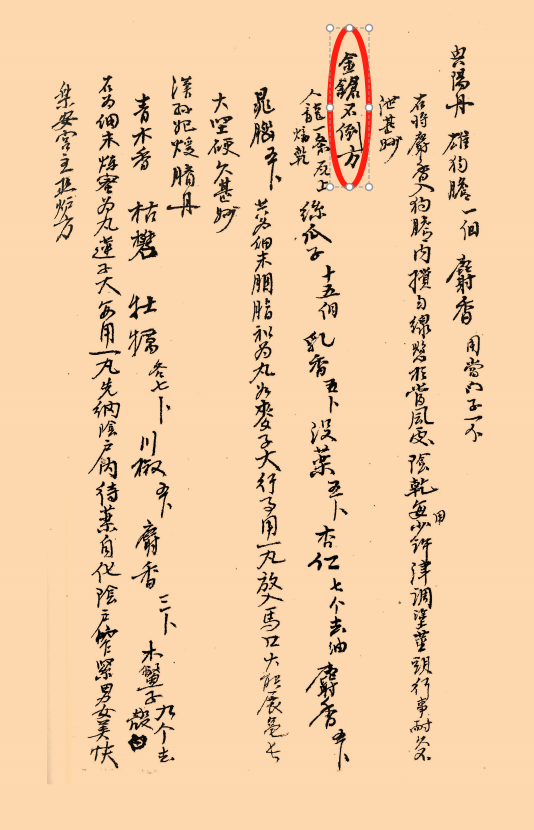 興陽丹 雄狗膽一個 麝香 用當門子一个
在將麝香入狗膽內攪勻線懸於當風處陰乾每用少許津調塗莖頭行事耐久不
泄甚妙
金鎗不倒方
人龍一条瓦上焙乾 絲瓜子十五個 乳香五卜 沒藥五卜 杏仁七个去油 麝香五卜
晁腦五卜 共為細末胭脂和為丸如麥子大行事用一丸放入馬口大能展龜長
大堅硬久甚妙
漢孙妃煖腊丹
青木香 枯礬 牡犡各七卜 川椒五卜 麝香三卜 木鱉子九个去殼
右為細末煉蜜為丸蓮子大每用一丸先納陰戶內待薬自化陰戶窄緊男女美快
樂安宮主 炉方